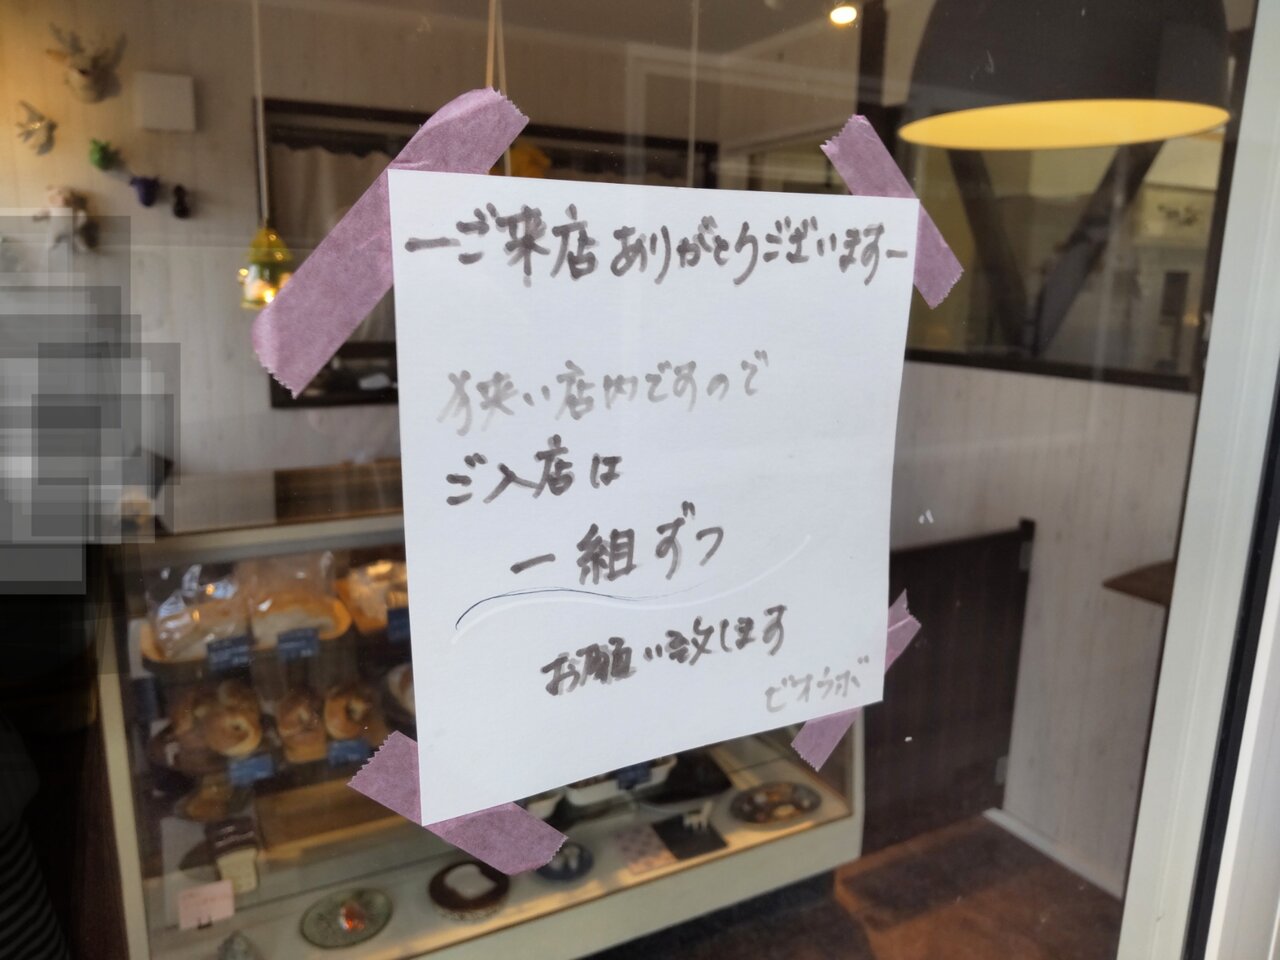 ーご来店ありがとうございますー
狭い店内ですので
ご入店は
一組ずつ
お願い致します
ビオラボ